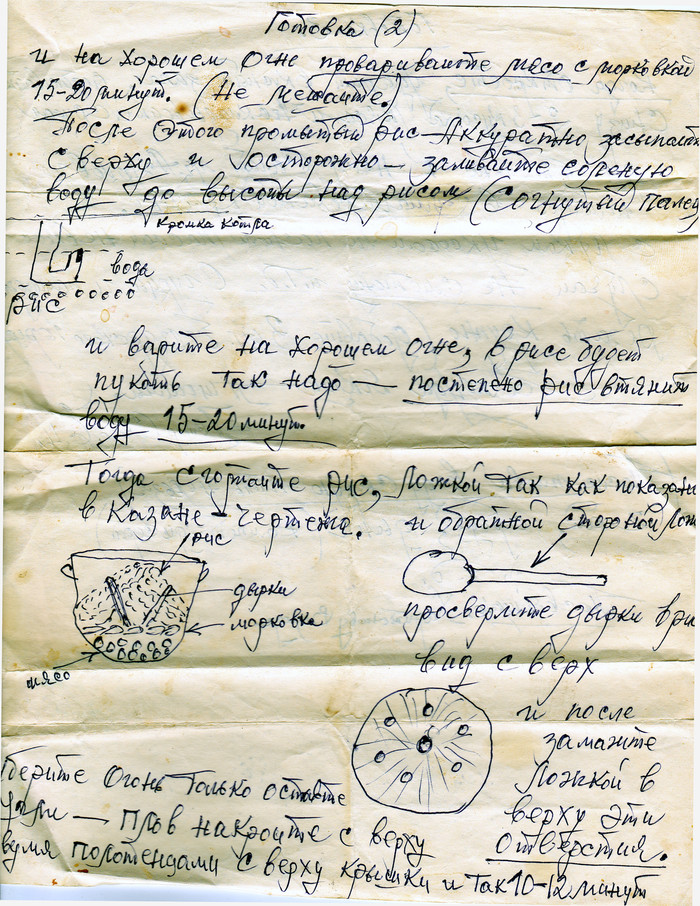 Готовка (2)
и на хорошем огне проваривайте мясо с морковкой
15-20 минут. (Не мешайте.)
После этого промытый рис — Аккуратно засыпайте
сверху и осторожно — заливайте соленую
воду до высоты над рисом (Согнутый палец)
кромка котла
вода
рис
и варите на хорошем огне, в рисе будет
пукать так надо — постепено рис втянит
воду 15-20 минут.
Тогда сгортайте рис, ложкой так как показан
в казане — чертежа. и обратной стороной лож
рис
дырки
морковка
мясо
просверлите дырки в ри
вид с верх
и после
замажте
ложкой в
верху эти
отверстия.
берите огонь только оставте
угли — плов накройте с верху
вумя полотенцами с верху крышки и так 10-12 минут